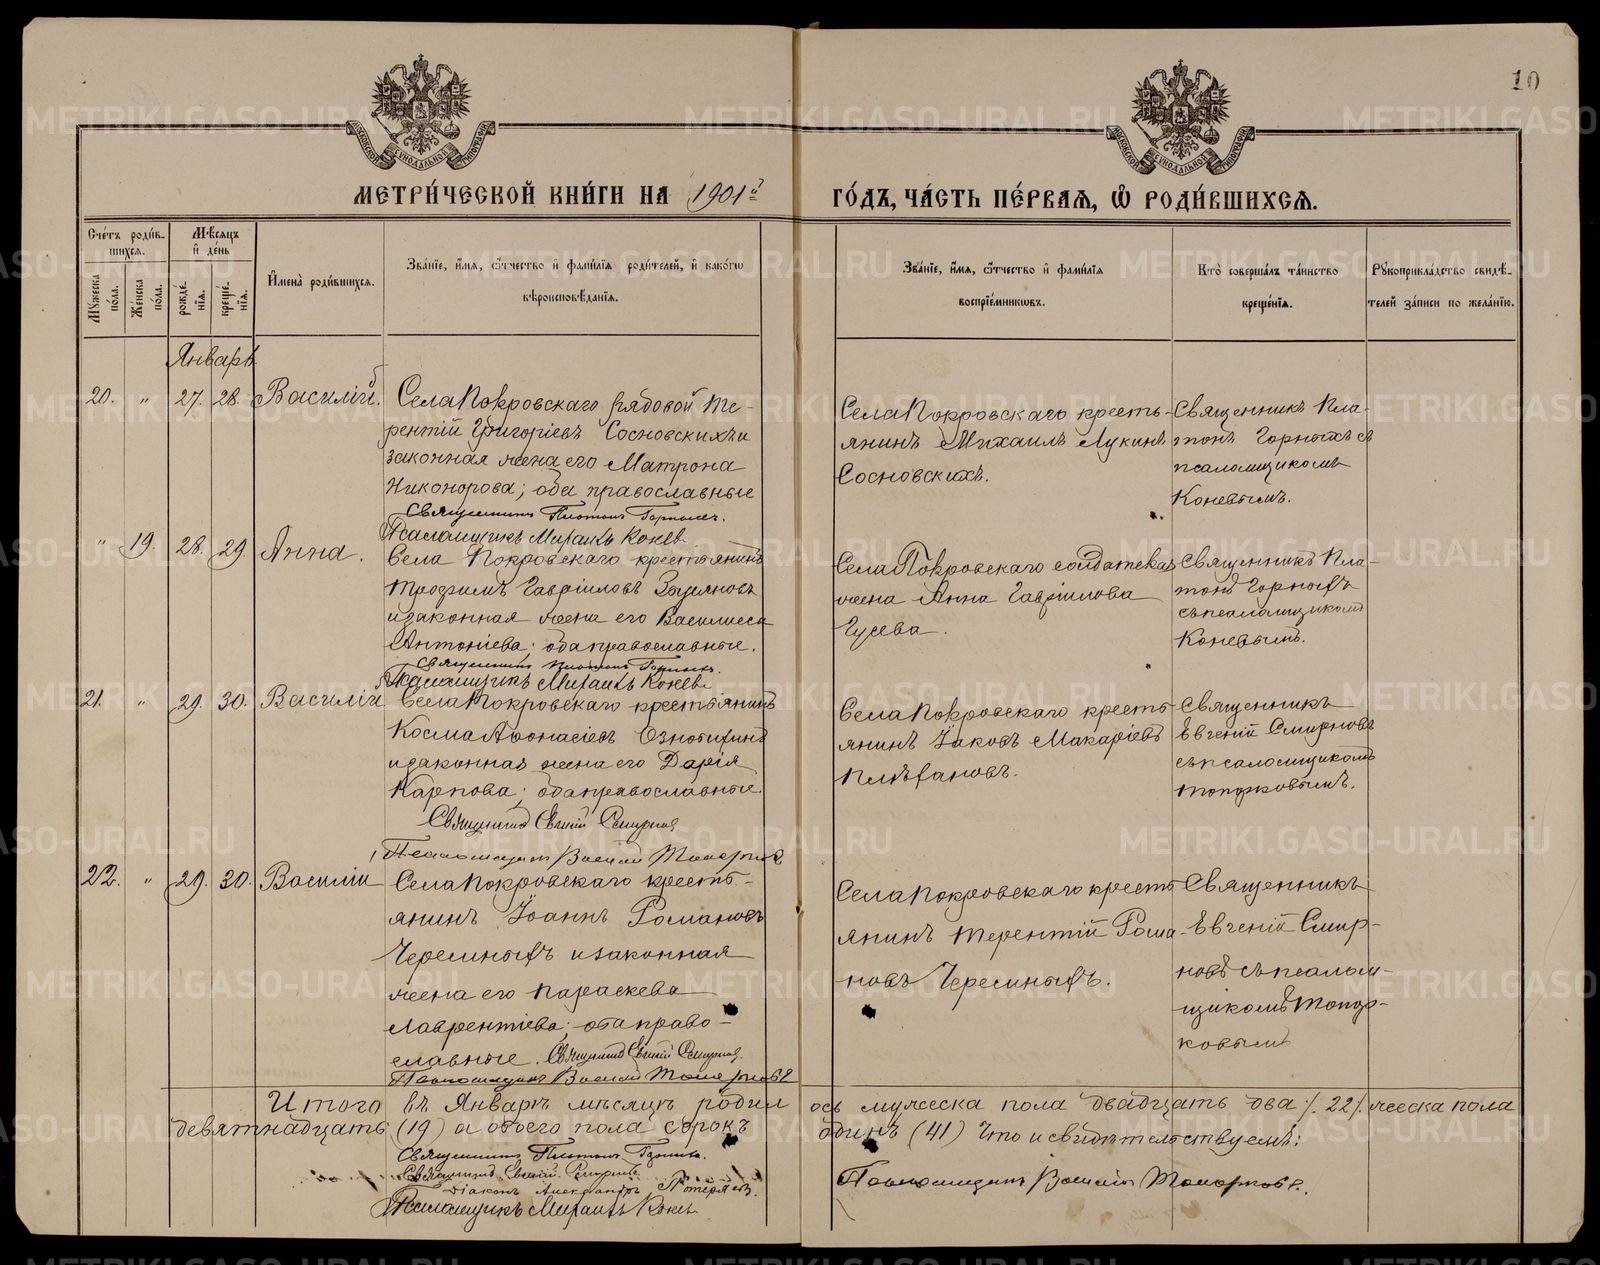 10
МОСКОВСКОЙ СУНОДАЛЬНОЙ ТИПОГРАФІИ
МОСКОВСКОЙ СУНОДАЛЬНОЙ ТИПОГРАФІИ
МЕТРИ́ЧЕСКОЙ КНИ́ГИ НА 1901й
ГО́ДЪ, ЧА́СТЬ ПЕ́РВАѦ, Ѡ РОДИ́ВШИХСѦ.
Сче́тъ роди́в-
шихся.
Мѣ́сяцъ
и де́нь
Му́жеска
по́ла.
Же́нска
по́ла.
рожде́-
нія.
креще́-
нія.
Имена̀ роди́вшихся.
Зва́ніе, и́мя, ѻ́тчество и фами́лія роди́телей, и како́гѡ
вѣроисповѣ́данія.
Зва́ніе, и́мя, ѻ́тчество и фами́лія
воспріе́мникѡвъ.
Кто̀ соверша́лъ та́инство
креще́нія.
Рукоприкла́дство свидѣ́-
телей за́писи по жела́нію.
Январь
20. " 27. 28. Василій.
Села Покровскаго рядовой Те-
рентій Григоріевъ Сосновскихъ и
законная жена его Матрона
Никонорова; оба православные
Священникъ Платонъ Горныхъ.
Псаломщикъ Михаилъ Коневъ
Села Покровскаго кресть-
янинъ Михаилъ Лукинъ
Сосновскихъ.
Священникъ Пла-
тонъ Горныхъ съ
псаломщикомъ
Коневымъ.
" 19. 28. 29. Анна.
Села Покровскаго крестьянинъ
Трофимъ Гавріиловъ
и законная жена его Василиса
Антоніева; оба православные.
Священникъ Платонъ Горныхъ.
Псаломщикъ Михаилъ Коневъ
Села Покровскаго солдатская
жена Анна Гавріилова
Гусева.
Священникъ Пла-
тонъ Горныхъ
съ псаломщикомъ
Коневымъ.
21. " 29. 30. Василій
Села Покровскаго крестьянинъ
Косма Афонасіевъ
и законная жена его Дарія
Карпова; оба православные.
Священникъ Евгеній Смирновъ
Псаломщикъ Василій Топорковъ
Села Покровскаго кресть-
янинъ Іаковъ Макаріевъ
Плѣхановъ.
Священникъ
Евгеній Смирновъ
съ псаломщикомъ
Топорковымъ.
22. " 29. 30. Василій
Села Покровскаго кресть-
янинъ Іоаннъ Романовъ
Черемныхъ и законная
жена его Параскева
Лаврентіева; оба право-
славные. Священникъ Евгеній Смирновъ.
Псаломщикъ Василій Топорковъ
Села Покровскаго кресть-
янинъ Терентій Рома-
новъ Черемныхъ.
Священникъ
Евгеній Смир-
новъ съ псалом-
щикомъ Топор-
ковымъ
Итого въ Январѣ мѣсяцѣ родил ось мужеска пола двадцать два /. 22 /. женска пола
девятнадцать (19) а обоего пола сорокъ одинъ (41) Что и свидѣтельствуемъ:
Священникъ Платонъ Горныхъ.
Священникъ Евгеній Смирновъ.
Діаконъ Александръ
Псаломщикъ Михаилъ Коневъ
Псаломщикъ Василій Топорковъ.
METRIKI.GASO-URAL.RU